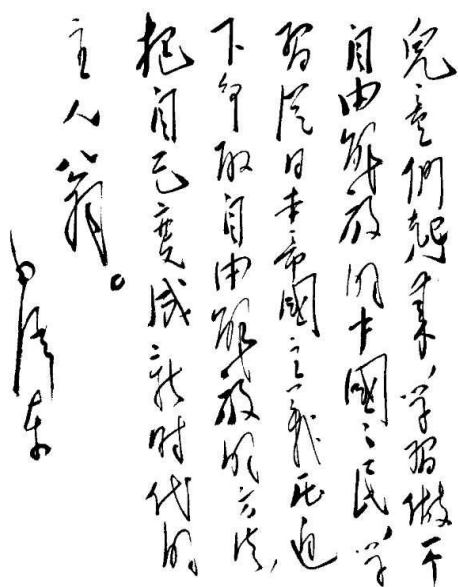 兒童們起來，学習做一个
自由解放的中國々民，学
習從日本帝國主義压迫
下争取自由解放的方法，
把自己變成新时代的
主人翁。
毛澤東